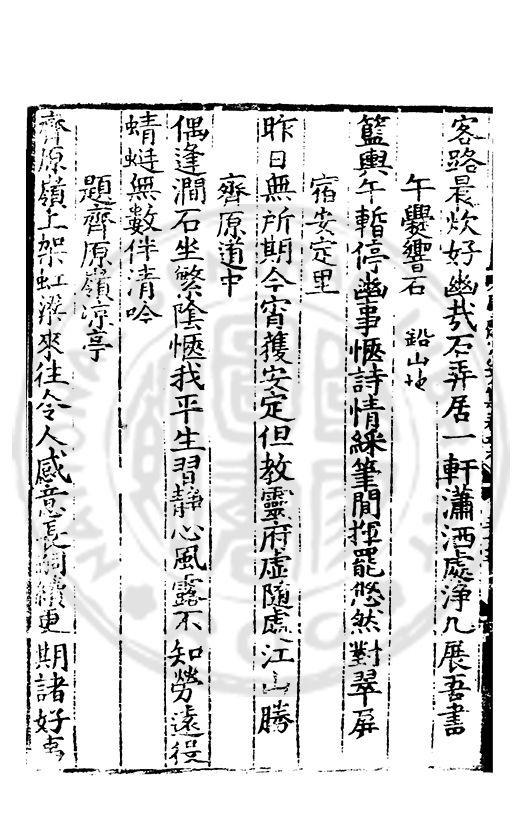 客路晨炊好幽哉石弄居一軒瀟洒處浄几展吾書
午爨響石 鉛山地
籃輿午暫停幽事愜詩情綵筆閒揮罷悠然對翠屏
宿安定里
昨日無所期今宵獲安定但教靈府虛隨處江山勝
齊原道中
偶逢澗石坐繁陰愜我平生習靜心風露不知勞遠役
蜻蜓無數伴清吟
題齊原嶺涼亭
齊原嶺上架虹梁來往令人感意長嗣續更期諸好事